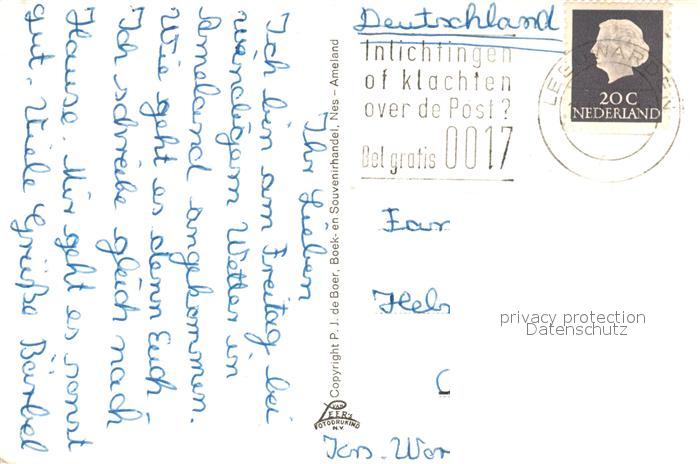 Ihr Lieben
Ich bin am Freitag bei
windigem Wetter in
Ameland angekommen.
Wie geht es denn Euch
Ich schreibe gleich nach
Hause. Mir geht es sonst
gut. Viele Grüße Bärbel
Copyright P. J. de Boer, Boek- en Souvenirhandel, Nes – Ameland
VAN LEER's
FOTODRUKIND
N.V.
Deutschland
Inlichtingen
of klachten
over de Post?
Bel gratis 0017
LEEUWARDEN
20 C
NEDERLAND
Fam
Hel
privacy protection
Datenschutz
Krs. Wor